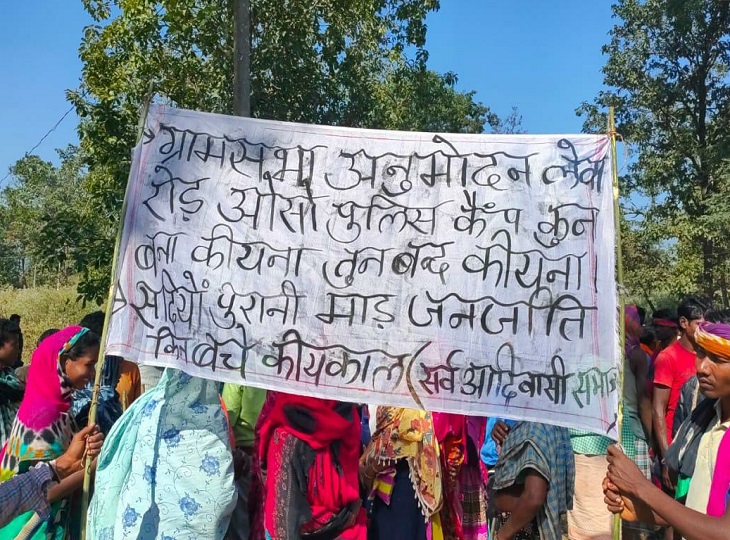 → ग्रामसभा अनुमोदन लेवा
रोड़ ओसो पुलिस कैंप कुन
बना कीयना वुन बंद कीयना
→ सदियों पुरानी माड़ जनजाति
बेचे कीयकाल (सर्व आदिवासी समाज